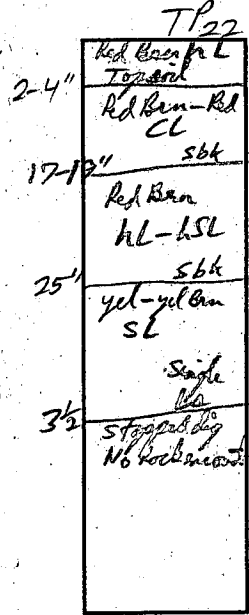 TP22
Red Brn hL
Topsoil
2-4"
Red Brn-Red
CL
sbk
17-19"
Red Brn
hL-hSL
sbk
25"
yel-yel Brn
SL
Single
3½
Stopped dig
No Rock encount